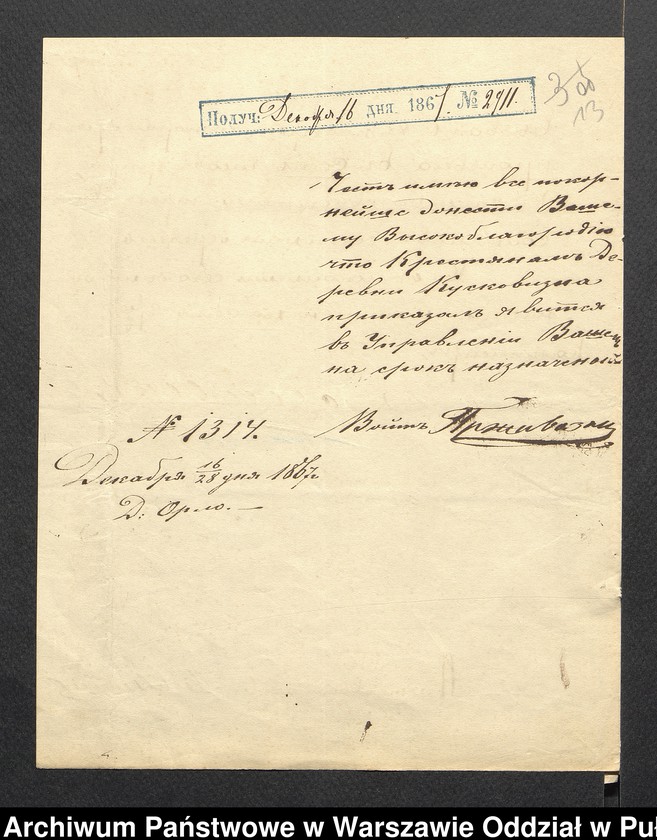 Получ: Декабря 16 дня 1867 № 2911.
13
Честь имею все покор-
нейше донести Ваше-
му Высокоблагородію
что Крестянамъ Де-
ревни Кусковизна
приказалъ явится
въ Управленіи Вашем
на срокъ назначеный
№ 1314.
Войтъ
Декабря 16/28 дня 1867г
Д: Орло.
Archiwum Państwowe w Warszawie Oddział w Puł